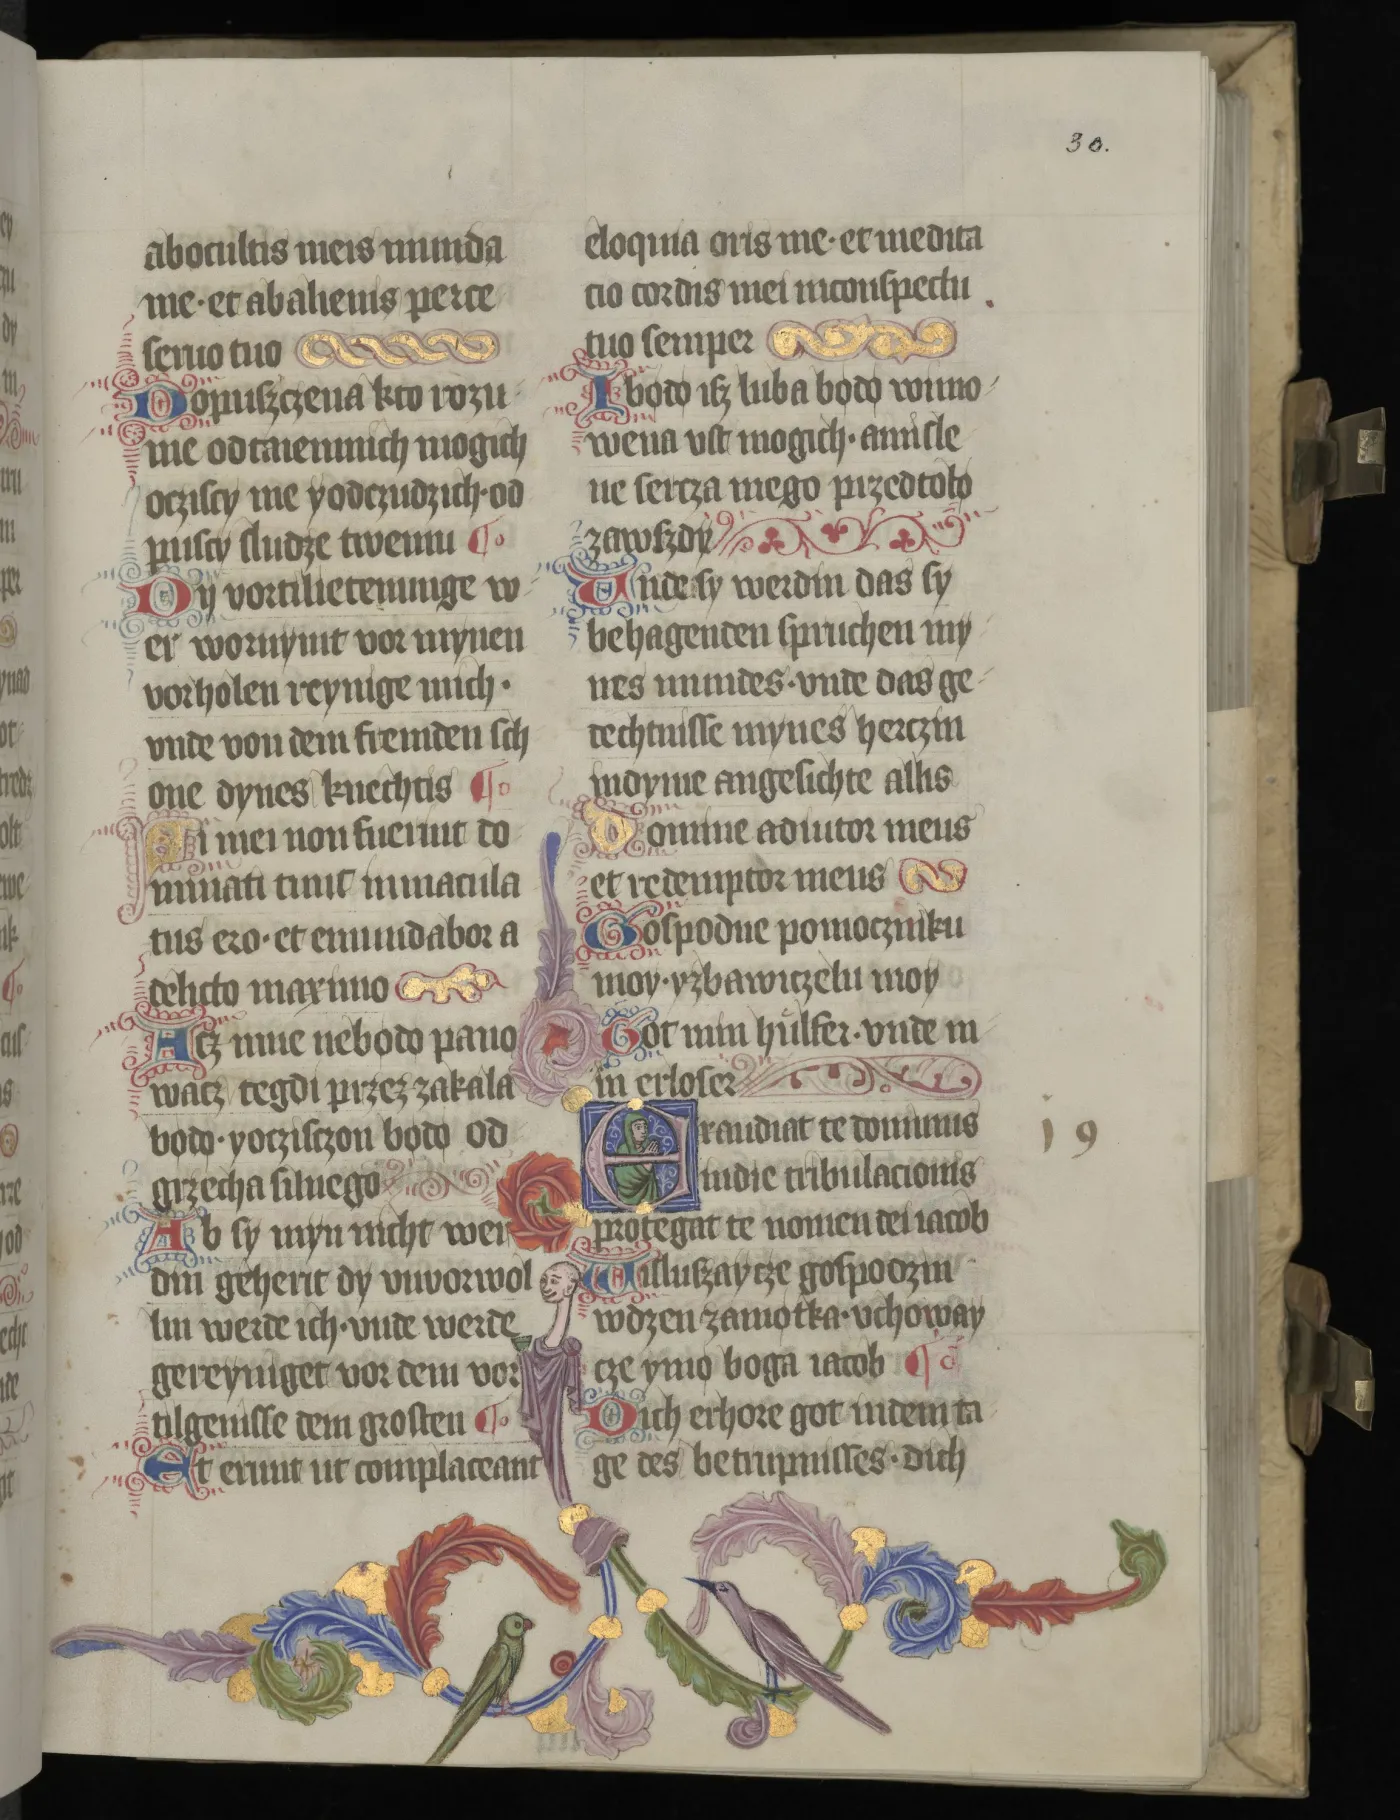 30.
abocultis meis munda
me·et abalienis perce
seruo tuo
Dopuszczena kto rozu
me odtaiemnich mogich
ocziscy me yodczudzich·od
puscy sludze twemu
Dy vortilieteninge w
er wornymt vor mynen
vorholen reynige mich·
vnde von dem fremden sch
one dynes knechtis
Si mei non fuerint do
minati tunc inmacula
tus ero·et emundabor a
delicto maximo
Acz mne nebodo pano
wacz tegdi przez zakala
bodo·yocziszczon bodo od
grzecha silnego
Ab sy myn nicht wer
din geherit dy vnvorwol
lin werde ich·vnde werde
gereyniget vor dem vor
tilgenisse dem grosten
Et erunt ut complaceant
eloquia oris me·et medita
cio cordis mei inconspectu
tuo semper
I bodo isz luba bodo wimo
wena vst mogich·amisle
ne sercza mego przedtobo
zawszdy
Unde sy werdin das sy
behagenden spruchen my
nes mundes·vnde das ge
dechtnisse mynes herczin
indyme angesichte allis
Domine adiutor meus
et redemptor meus
Gospodne pomoczniku
moy·yzbawiczelu moy
Got min hulfer·vnde m
in erloser
Exaudiat te dominus
indie tribulacionis
protegat te nomen dei iacob
19
Uslluszay cze gospodzin
wdzen zamotka·vchoway
cze ymo boga iacob
Dich erhore got indem ta
ge des betrupnisses·dich